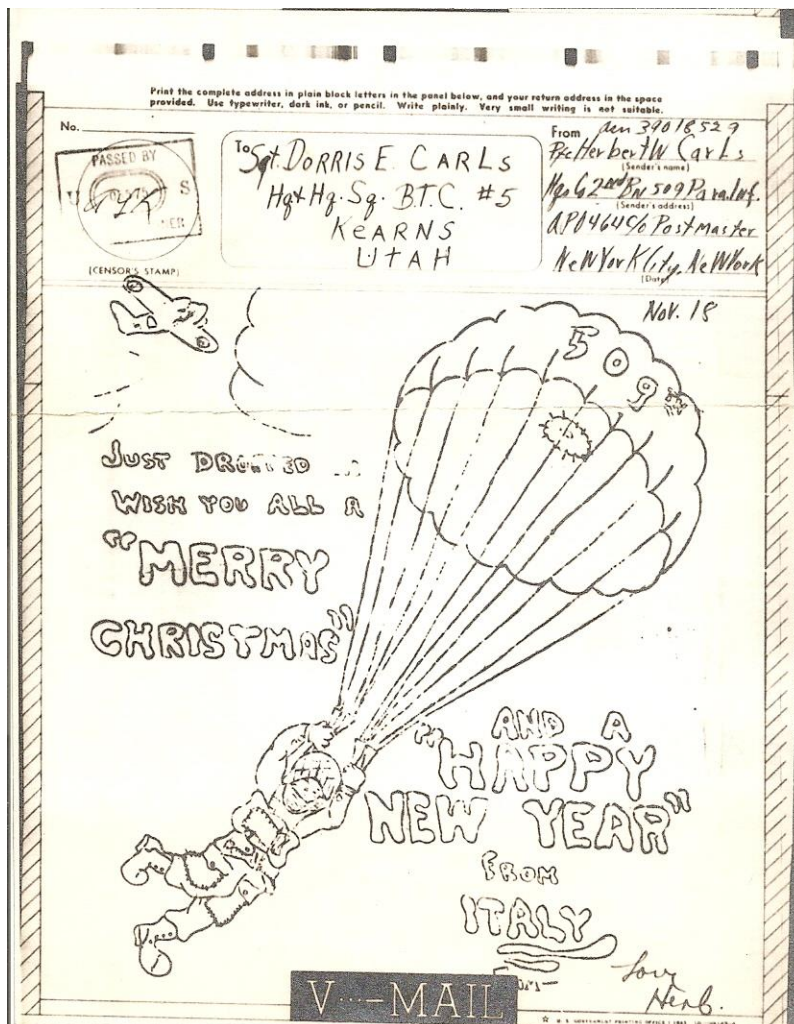 Print the complete address in plain block letters in the panel below, and your return address in the space
provided. Use typewriter, dark ink, or pencil. Write plainly. Very small writing is not suitable.
No.
PASSED BY
U S
(CENSOR'S STAMP)
To Sgt. DORRIS E. CARLS
Hq & Hq. Sq. B.T.C. #5
KEARNS
UTAH
From asn 39018529
Pfc Herbert W Carls
(Sender's name)
2nd Bn 509 Para. Inf.
(Sender's address)
APO 464 c/o Postmaster
New York City, New York
(Date)
Nov. 18
509
JUST DRIFTED
WISH YOU ALL A
"MERRY
CHRISTMAS"
AND A
"HAPPY
NEW YEAR"
FROM
ITALY
Love
Herb.
V···—MAIL